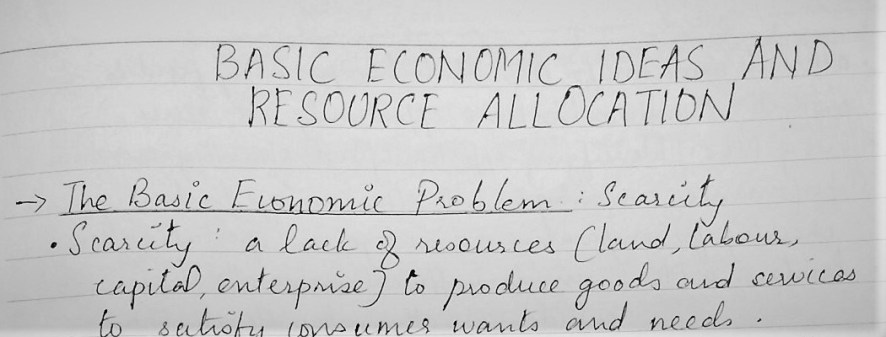 BASIC ECONOMIC IDEAS AND
RESOURCE ALLOCATION
→ The Basic Economic Problem : Scarcity
• Scarcity : a lack of resources (land, labour,
capital, enterprise) to produce goods and services
to satisfy consumer wants and needs.